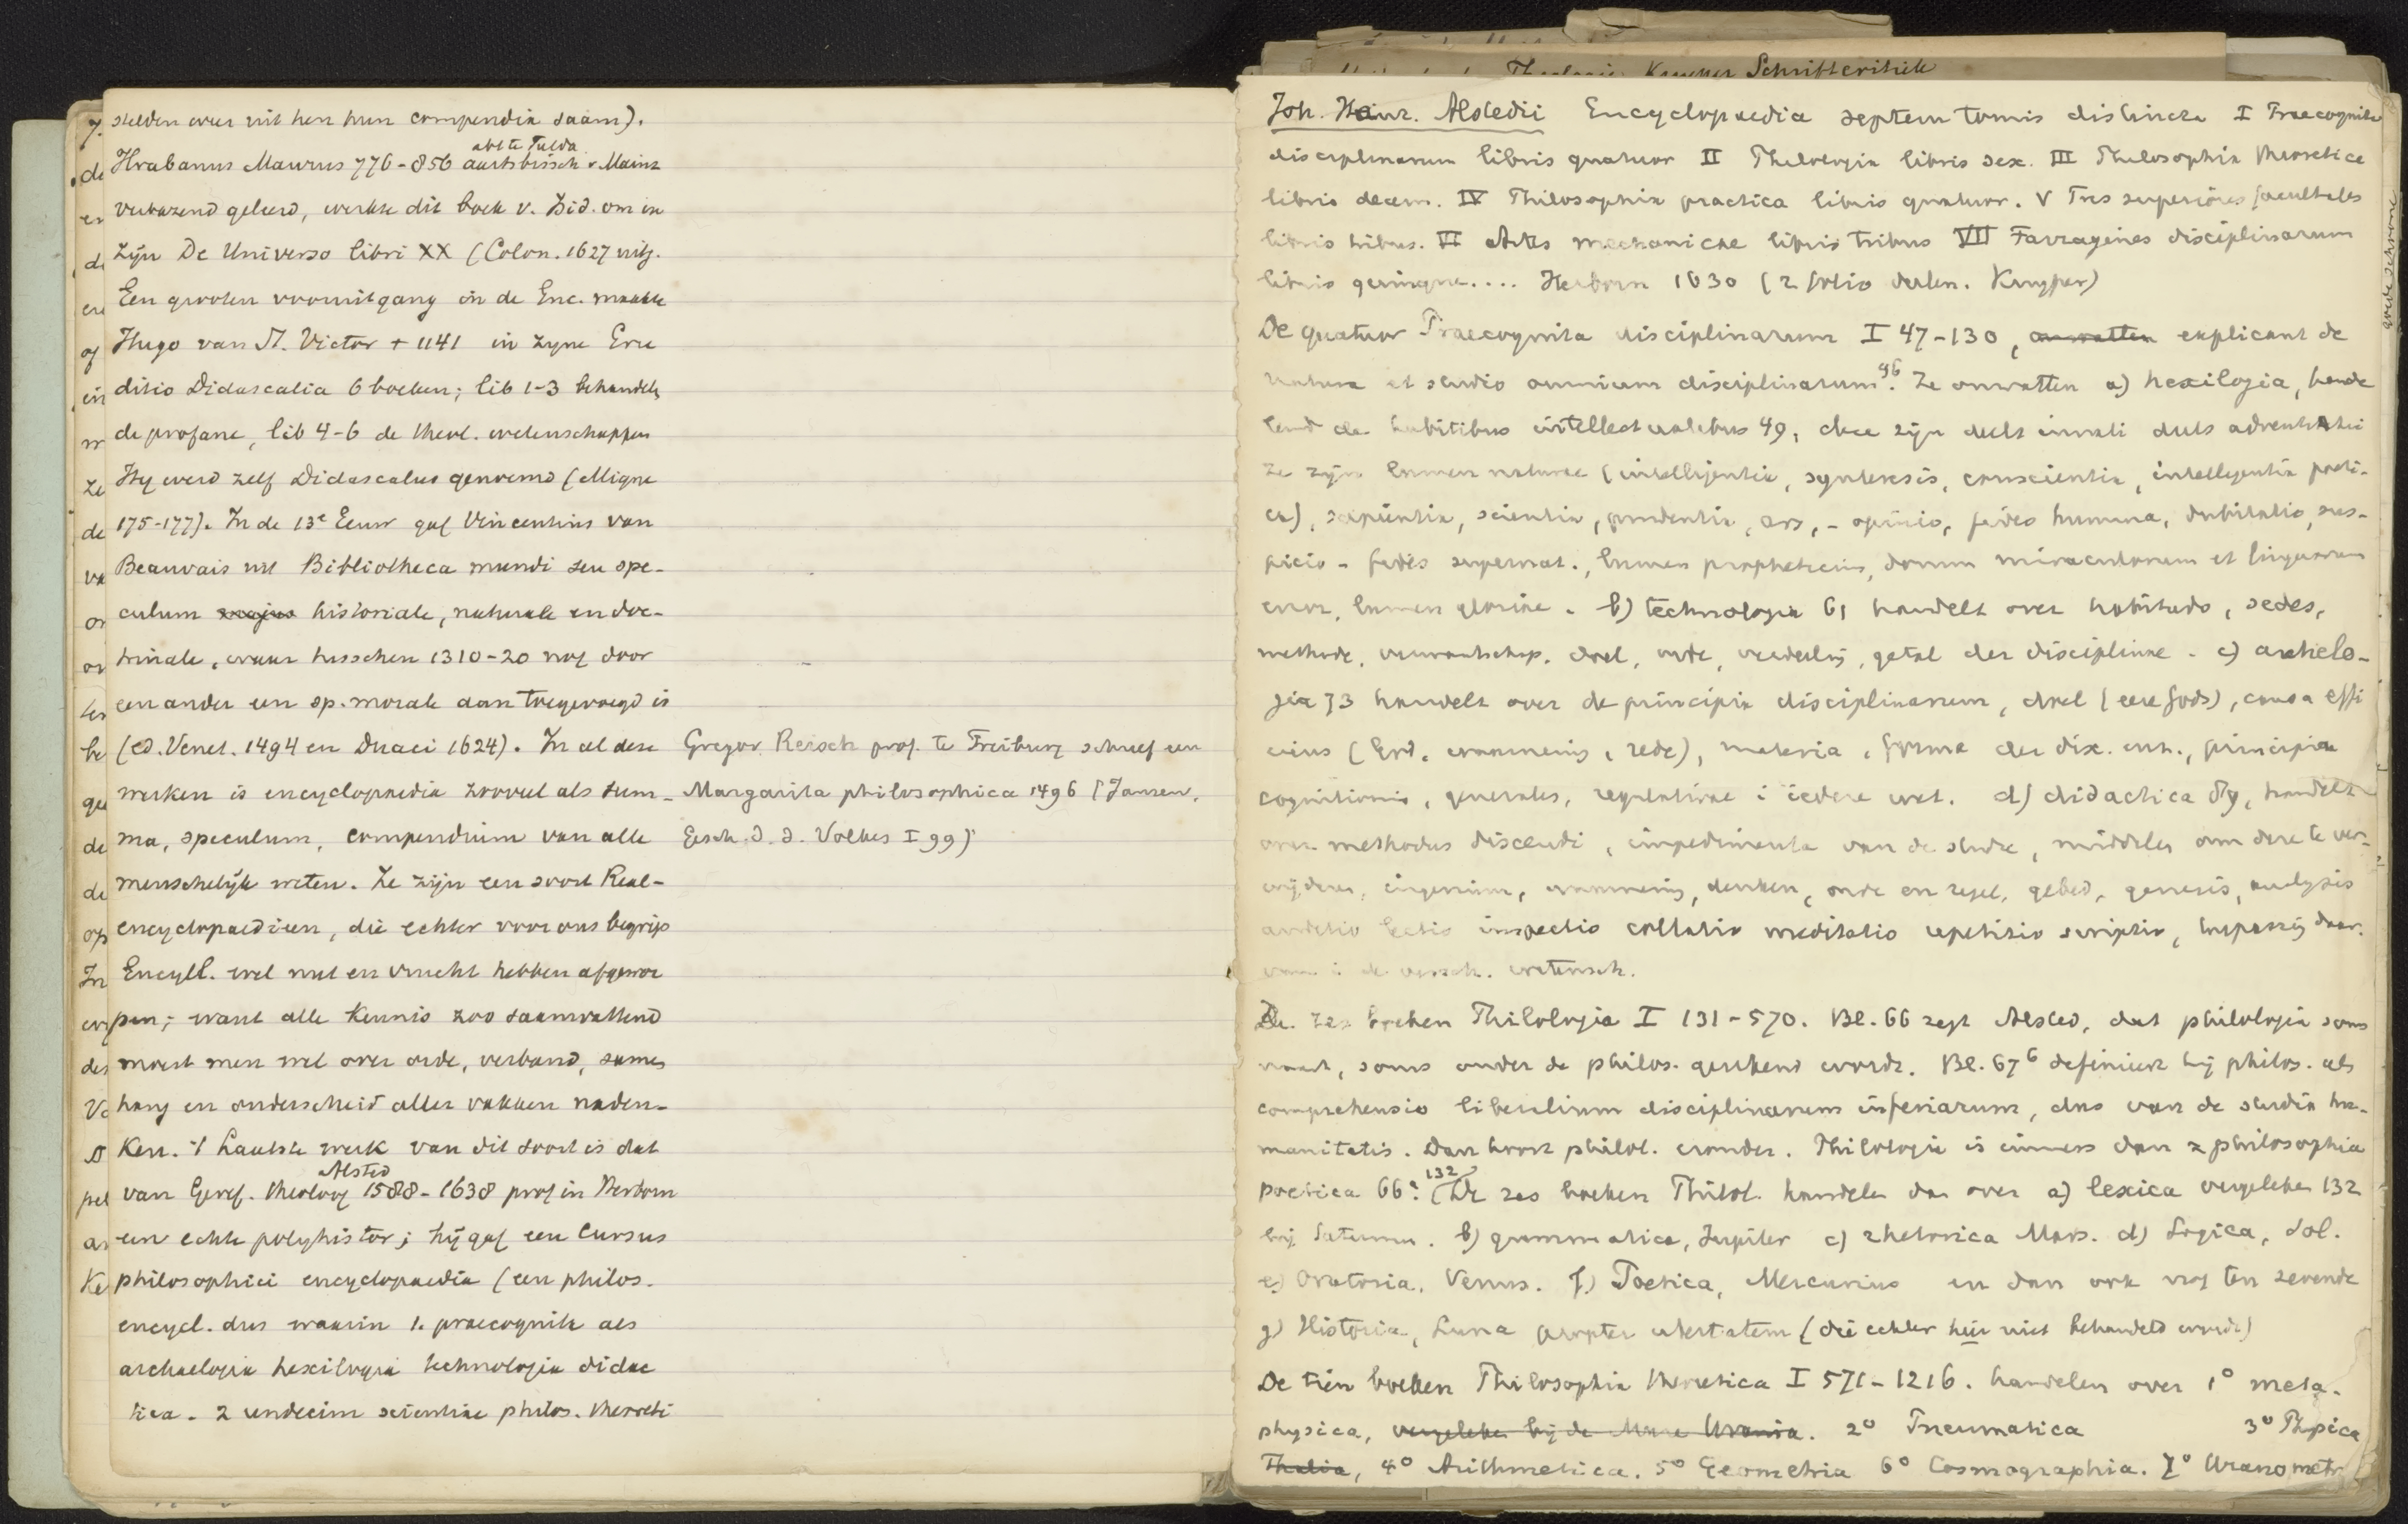 stelden weer uit hen hun compendia saam).
abt te Fulda
Hrabanus Maurus 776-856 aartsbissch. v. Mainz
verbazend geleerd, werkte dit boek v. Isid. om in
zijn De Universo libri XX (Colon. 1627 uitg.
Een grooten vooruitgang in de Enc. maakte
Hugo van St. Victor + 1141 in zijne Eru
ditio Didascalia 6 boeken; lib 1-3 behandelt
de profane, lib 4-6 de theol. wetenschappen
Hij werd zelf Didascalus genoemd (Migne
175-177). In de 13e Eeuw gaf Vincentius van
Beauvais uit Bibliotheca mundi seu spe-
culum majus historiale, naturale en doc-
trinale, waar tusschen 1310-20 nog door
een ander een sp. morale aan toegevoegd is
(ed. Venet. 1494 en Duaci 1624). In al deze
werken is encyclopaedia zooveel als sum-
ma, speculum, compendium van alle
menschelijk weten. Ze zijn een soort Real-
encyclopaedieen, die echter voor ons begrip
Encycl. wel nut en vrucht hebben afgewor
pen; want alle kennis zoo saamvattend
moest men wel over orde, verband, samen
hang en onderscheid aller vakken naden-
ken. 't Laatste werk van dit soort is dat
Alsted
van Geref. theoloog 1588-1638 prof in Herborn
een echte polyhistor; hij gaf een Cursus
philosophici encyclopaedia (een philos.
encycl. dus waarin 1. praecognita als
archaelogia hexilogia technologia didac
tica - 2 undecim scientiae philos. theoreti
Gregor. Reisch prof. te Freiburg schreef een
Margarita philosophica 1496 (Janssen,
Gesch. d. d. Volkes I 99)
Theologie Kuyper Schriftcritiek
Joh. Heinr. Alstedii Encyclopaedia septem tomis distincta I Praecognita
disciplinarum libris quatuor II Philologia libris sex. III Philosophia theoretica
libris decem. IV Philosophia practica libris quatuor. V Tres superiores facultates
libris tribus. VI Artes mechanicae libris tribus VII Farragines disciplinarum
libris quinque.... Herborn 1630 (2 folio deelen. Kuyper)
De quatuor Praecognita disciplinarum I 47-130, omvatten explicant de
natura et studio omnium disciplinarum 46. Ze omvatten a) hexilogia, hande
lend de habitibus intellectualibus 49, deze zijn deels innati deels adventitii
Ze zijn lumen naturae (intelligentia, synteresis, conscientia, intelligentia practi-
ca), sapientia, scientia, prudentia, ars, - opinio, fides humana, dubitatio, sus-
picio - fides supernat., lumen propheticum, donum miraculorum et linguarum
error, lumen gloriae. b) technologia 61 handelt over habitudo, sedes,
methode, verwantschap, doel, orde, verdeeling, getal der disciplinae. c) archelo-
gia 73 handelt over de principia disciplinarum, doel (eere Gods), causa effi
ciens (God, waarneming, rede), materia, forma der disc. enz., principia
cognitionis, generales, regulativae i iedere wet. d) didactica 89, handelt
over methodus discendi, impedimenta van de studie, middelen om deze te ver-
wijderen, ingenium, waarneming, denken, orde en regel, gebed, genesis, analysis
auditio lectio inspectio collatio meditatio repetitio scriptio, toepassing daar-
van i de versch. wetensch.
De zes boeken Philologia I 131-570. Bl. 66 zegt Alsted, dat philologia soms
naast, soms onder de philos. gerekend wordt. Bl. 67b definieert hij philos. als
comprehensio liberalium disciplinarum inferiarum, dus van de studia hu-
manitatis. Dan hoort philol. eronder. Philologia is immers dan = philosophia
132
poetica 66a. (De zes boeken Philol. handelen dan over a) lexica vergeleken 132
bij Saturnus. b) grammatica, Jupiter c) rhetorica Mars. d) Logica, Sol.
e) Oratoria, Venus. f.) Poetica, Mercurius en dan ook nog ten zevende
g) Historia, Luna propter ubertatem (die echter hier niet behandeld wordt)
De tien boeken Philosophia theoretica I 571-1216. handelen over 1° meta-
physica, vergeleken bij de Muze Urania. 2° Pneumatica 3° Physica
Thalia, 4° Arithmetica. 5° Geometria 6° Cosmographia. 7° Uranometr